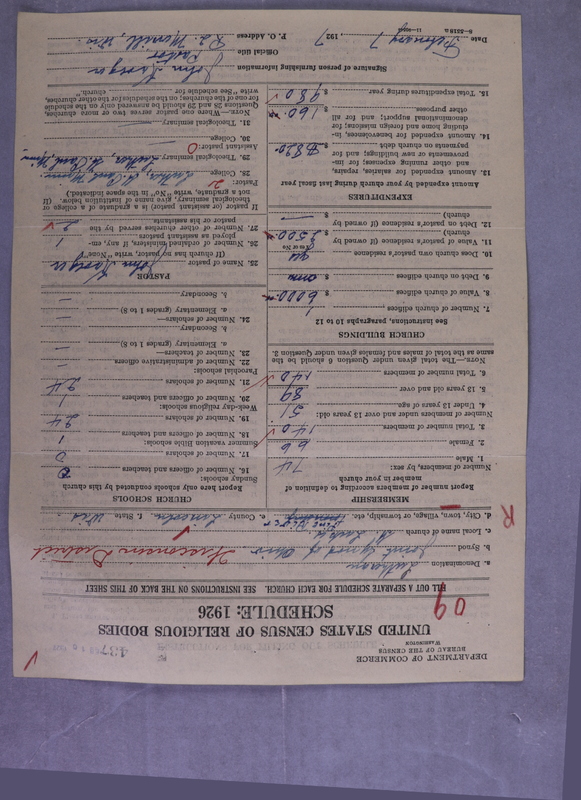 DEPARTMENT OF COMMERCE
BUREAU OF THE CENSUS
WASHINGTON
4374
UNITED STATES CENSUS OF RELIGIOUS BODIES
SCHEDULE: 1926
09
FILL OUT A SEPARATE SCHEDULE FOR EACH CHURCH. SEE INSTRUCTIONS ON THE BACK OF THIS SHEET
a. Denomination Lutheran
b. Synod Joint Synod of Ohio Wisconsin District
c. Local name of church St. Luke's
d. City, town, village, or township, etc. Pine River e. County Lincoln f. State Wis.
R
MEMBERSHIP
Report number of members according to definition of member in your church
Number of members, by sex:
1. Male 74
2. Female 66
3. Total number of members 140
Number of members under and over 13 years old:
4. Under 13 years of age 51
5. 13 years old and over 89
6. Total number of members 140
NOTE.—The total given under Question 6 should be the same as the total of males and females given under Question 3.
CHURCH BUILDINGS
See instructions, paragraphs 10 to 12
7. Number of church edifices 1
8. Value of church edifices $ 6000
9. Debt on church edifices $ none
10. Does church own pastor's residence yes
(Yes or No)
11. Value of pastor's residence (if owned by church) $ 3500
12. Debt on pastor's residence (if owned by church) $ —
EXPENDITURES
Amount expended by your church during last fiscal year
13. Amount expended for salaries, repairs, and other running expenses; for improvements or new buildings; and for payments on church debt $ 820
14. Amount expended for benevolences, including home and foreign missions; for denominational support; and for all other purposes $ 160
15. Total expenditures during year $ 980
CHURCH SCHOOLS
Report here only schools conducted by this church
Sunday schools:
16. Number of officers and teachers 0
17. Number of scholars 0
Summer vacation Bible schools:
18. Number of officers and teachers 1
19. Number of scholars 24
Week-day religious schools:
20. Number of officers and teachers 1
21. Number of scholars 24
Parochial schools:
22. Number of administrative officers —
23. Number of teachers—
a. Elementary (grades 1 to 8) —
b. Secondary —
24. Number of scholars—
a. Elementary (grades 1 to 8) —
b. Secondary —
PASTOR
25. Name of pastor John
(If church has no pastor, write "None")
26. Number of ordained ministers, if any, employed as assistant pastors —
27. Number of other churches served by the pastor or his assistants 2
If pastor (or assistant pastor) is a graduate of a college or theological seminary, give name of institution below. (If not a graduate, write "No," in the space indicated.)
Pastor: 2
28. College Luther, St. Paul, Minn.
29. Theological seminary Luther, St. Paul, Minn.
Assistant pastor: 0
30. College
31. Theological seminary
NOTE.—Where one pastor serves two or more churches, Questions 28 and 29 should be answered only on the schedule for one of the churches; on the schedules for the other churches, write "See schedule for church."
Signature of person furnishing information John
Official title Pastor
P. O. Address R.2 Merrill, Wis.
Date February 7, 1927
8—5518 a